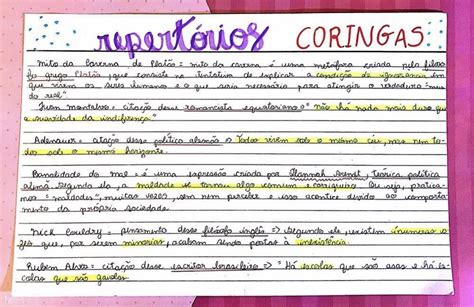 repertórios CORINGAS
Mito da Caverna de Platão = mito da caverna é uma metáfora criada pelo filóso
fo grego Platão, que consiste na tentativa de explicar a condição de ignorância em
que vivem os seres humanos e o que seria necessário para atingir o verdadeiro "mun
do real"
Juan montalvo = citação desse romancista equatoriano = "não há nada mais duro que
a suavidade da indiferença"
Adenauer = citação desse político alemão => Todos vivem sob o mesmo céu, mas nem to-
dos sob o mesmo horizonte.
Banalidade do mal = é uma expressão criada por Hannah Arendt, teórica política
alemã. Segundo ela, a maldade se tornou algo comum e corriqueiro. Ou seja, pratica-
mos "maldades", muitas vezes, sem nem perceber e isso acontece devido ao comporta-
mento da própria sociedade.
Nick Couldry = pensamento desse filósofo inglês => Segundo ele, existem inúmeras vo
zes, que, por serem minorias, acabam sendo postas à inexistência.
Rubem Alves = citação desse escritor brasileiro => "Há escolas que são asas e há es-
colas que são gaiolas